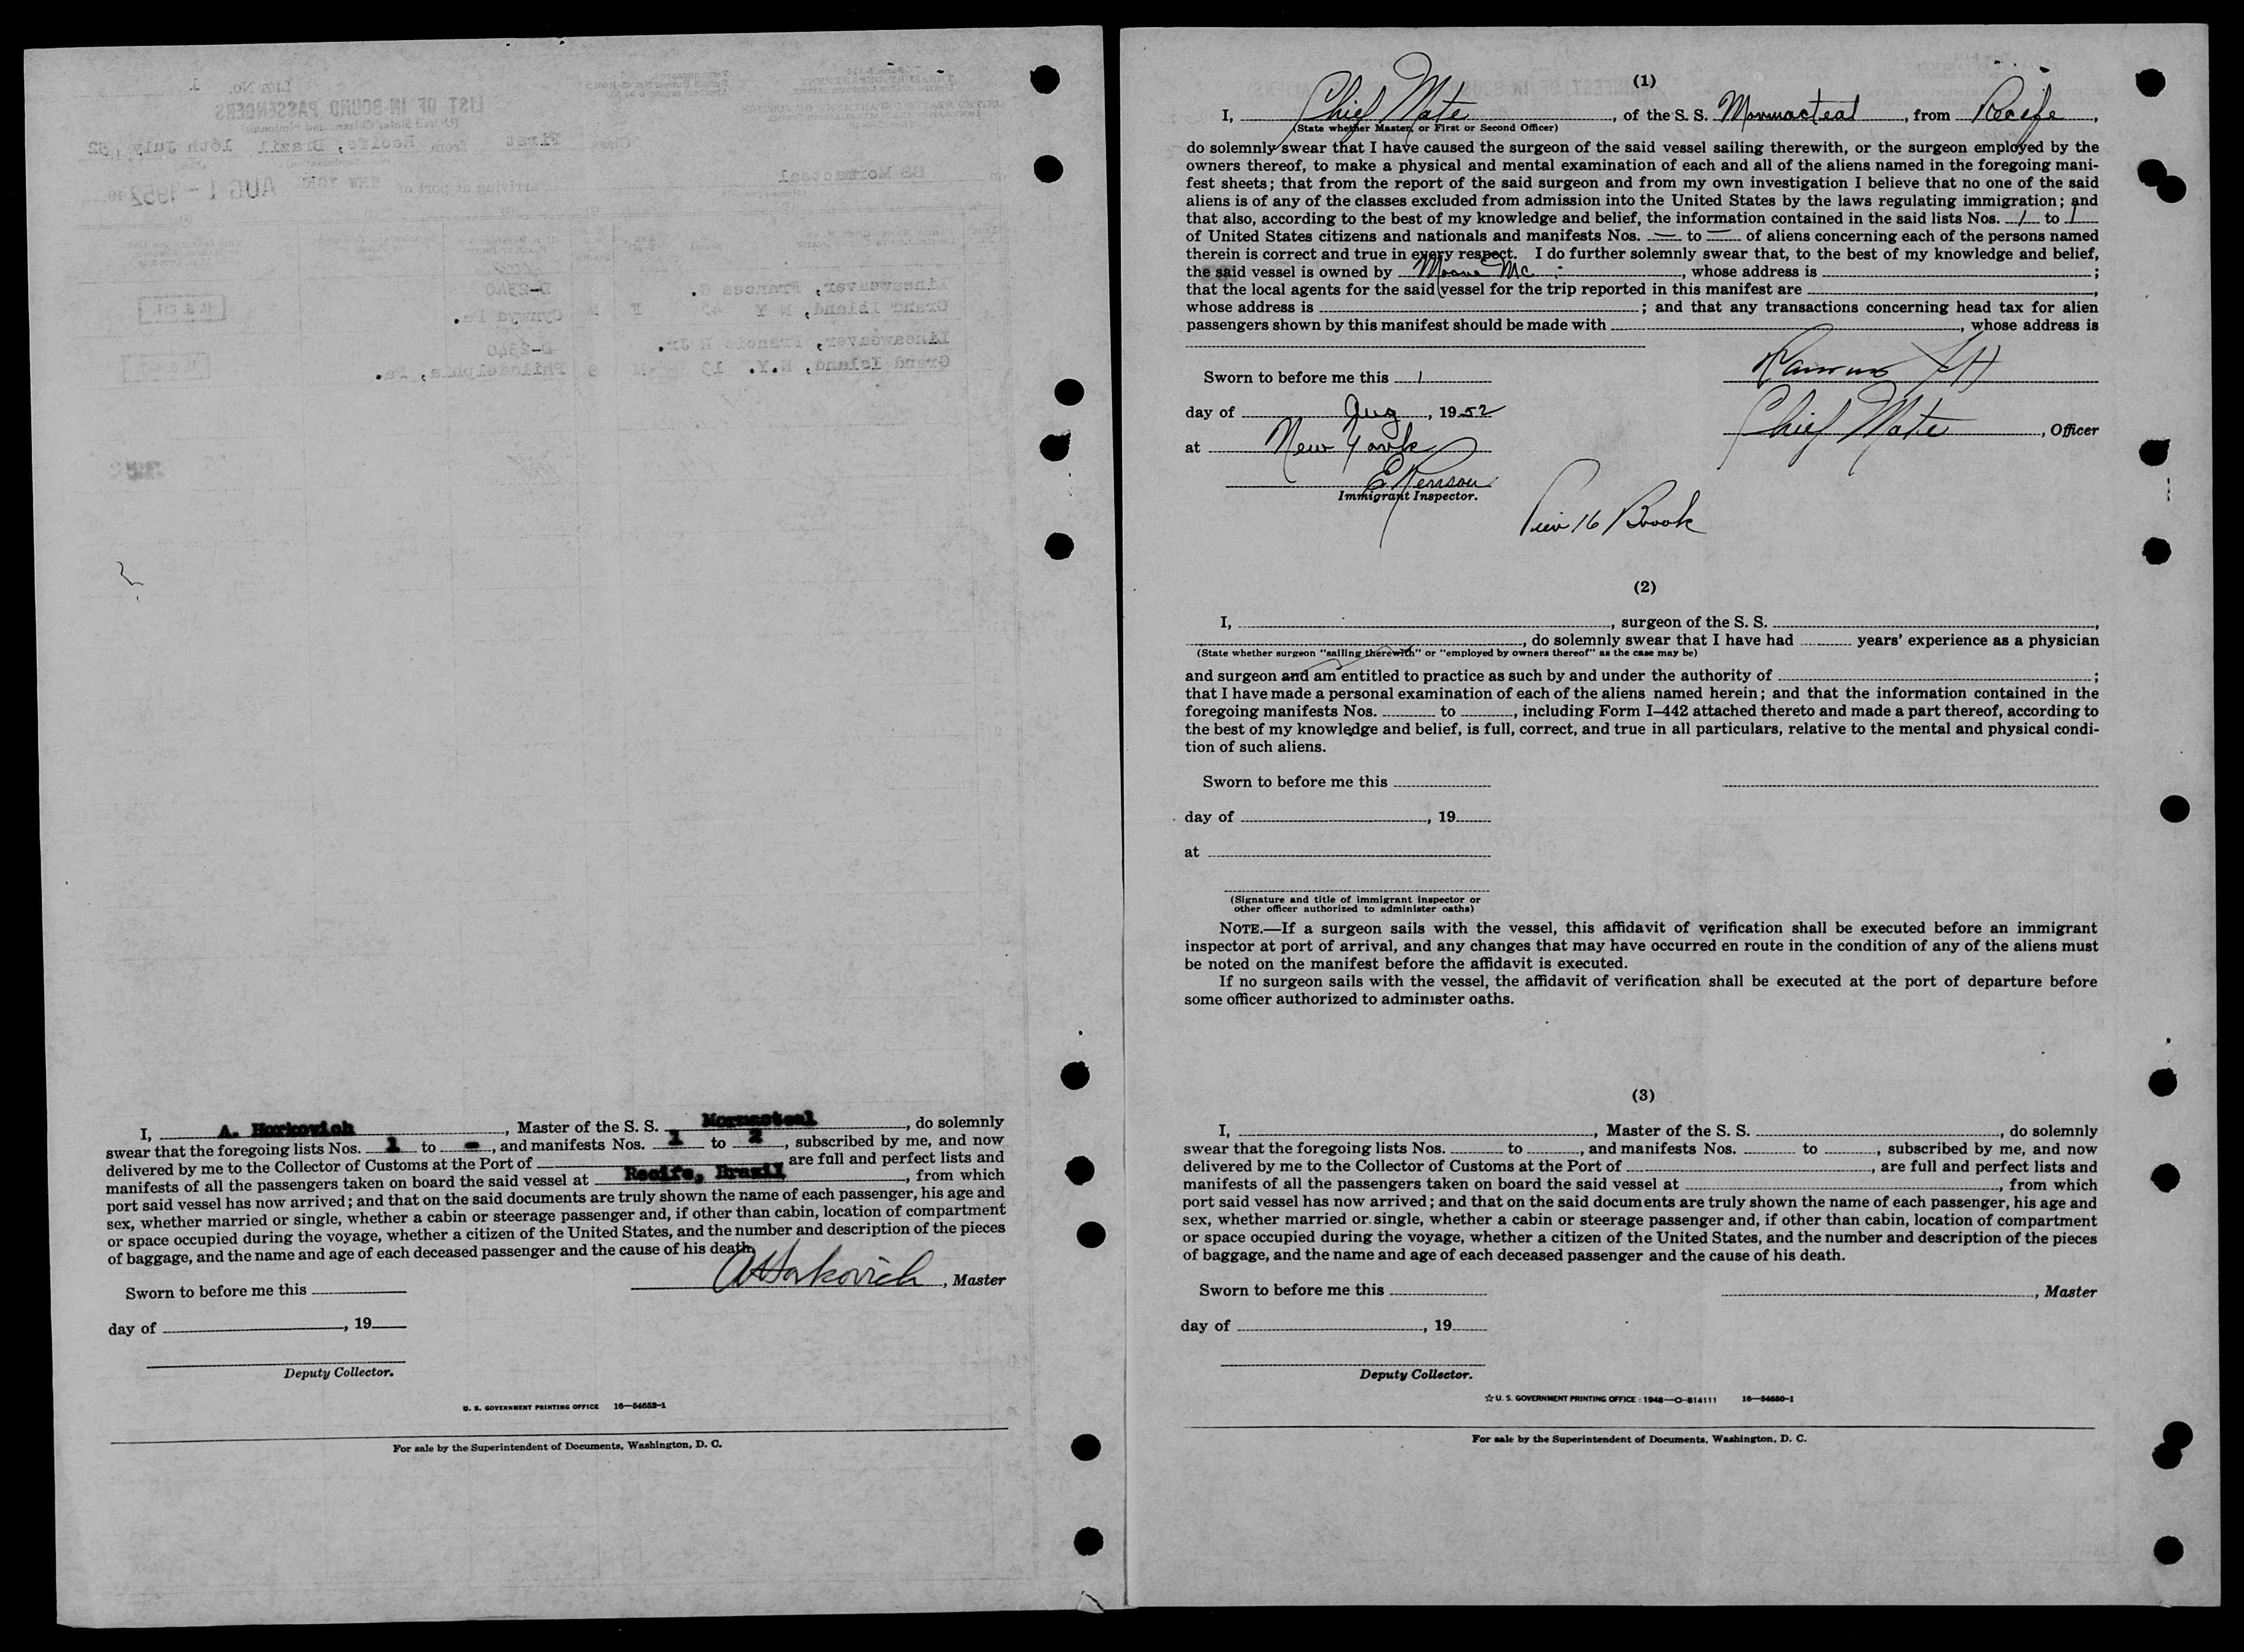 List No. 1
LIST OF IN-BOUND PASSENGERS
(United States Citizens and Nationals)
Class First from Recife, Brazil 16th July, 1952
on SS Mormacteal arriving at port of NEW YORK AUG 1 - 1952
D-2340
Lineaweaver, Frances S.
Grand Island, N Y 45 F M Cynwyd Pa.
D-2340
Lineaweaver, Francis H Jr.
Grand Island, N.Y. M S Philadelphia, Pa.
I, A. Horkovich, Master of the S. S. Mormacteal, do solemnly
swear that the foregoing lists Nos. 1 to -, and manifests Nos. 1 to 2, subscribed by me, and now
delivered by me to the Collector of Customs at the Port of are full and perfect lists and
manifests of all the passengers taken on board the said vessel at Recife, Brazil, from which
port said vessel has now arrived; and that on the said documents are truly shown the name of each passenger, his age and
sex, whether married or single, whether a cabin or steerage passenger and, if other than cabin, location of compartment
or space occupied during the voyage, whether a citizen of the United States, and the number and description of the pieces
of baggage, and the name and age of each deceased passenger and the cause of his death.
AHorkovich, Master
Sworn to before me this
day of , 19
Deputy Collector.
U. S. GOVERNMENT PRINTING OFFICE 16—54652-1
For sale by the Superintendent of Documents, Washington, D. C.
(1)
I, Chief Mate, of the S. S. Mormacteal, from Recife,
(State whether Master, or First or Second Officer)
do solemnly swear that I have caused the surgeon of the said vessel sailing therewith, or the surgeon employed by the
owners thereof, to make a physical and mental examination of each and all of the aliens named in the foregoing mani-
fest sheets; that from the report of the said surgeon and from my own investigation I believe that no one of the said
aliens is of any of the classes excluded from admission into the United States by the laws regulating immigration; and
that also, according to the best of my knowledge and belief, the information contained in the said lists Nos. 1 to 1
of United States citizens and nationals and manifests Nos. — to — of aliens concerning each of the persons named
therein is correct and true in every respect. I do further solemnly swear that, to the best of my knowledge and belief,
the said vessel is owned by Moore Mc , whose address is ;
that the local agents for the said vessel for the trip reported in this manifest are ,
whose address is ; and that any transactions concerning head tax for alien
passengers shown by this manifest should be made with , whose address is
Sworn to before me this 1
day of Aug, 1952
Chief Mate, Officer
at New York
Immigrant Inspector.
Pier 16 Brook
(2)
I, , surgeon of the S. S. ,
, do solemnly swear that I have had years' experience as a physician
(State whether surgeon "sailing therewith" or "employed by owners thereof" as the case may be)
and surgeon and am entitled to practice as such by and under the authority of ;
that I have made a personal examination of each of the aliens named herein; and that the information contained in the
foregoing manifests Nos. to , including Form I-442 attached thereto and made a part thereof, according to
the best of my knowledge and belief, is full, correct, and true in all particulars, relative to the mental and physical condi-
tion of such aliens.
Sworn to before me this
day of , 19
at
(Signature and title of immigrant inspector or
other officer authorized to administer oaths)
NOTE.—If a surgeon sails with the vessel, this affidavit of verification shall be executed before an immigrant
inspector at port of arrival, and any changes that may have occurred en route in the condition of any of the aliens must
be noted on the manifest before the affidavit is executed.
If no surgeon sails with the vessel, the affidavit of verification shall be executed at the port of departure before
some officer authorized to administer oaths.
(3)
I, , Master of the S. S. , do solemnly
swear that the foregoing lists Nos. to , and manifests Nos. to , subscribed by me, and now
delivered by me to the Collector of Customs at the Port of , are full and perfect lists and
manifests of all the passengers taken on board the said vessel at , from which
port said vessel has now arrived; and that on the said documents are truly shown the name of each passenger, his age and
sex, whether married or single, whether a cabin or steerage passenger and, if other than cabin, location of compartment
or space occupied during the voyage, whether a citizen of the United States, and the number and description of the pieces
of baggage, and the name and age of each deceased passenger and the cause of his death.
Sworn to before me this
, Master
day of , 19
Deputy Collector.
☆ U. S. GOVERNMENT PRINTING OFFICE : 1948—O-814111 16—54650-1
For sale by the Superintendent of Documents, Washington, D. C.